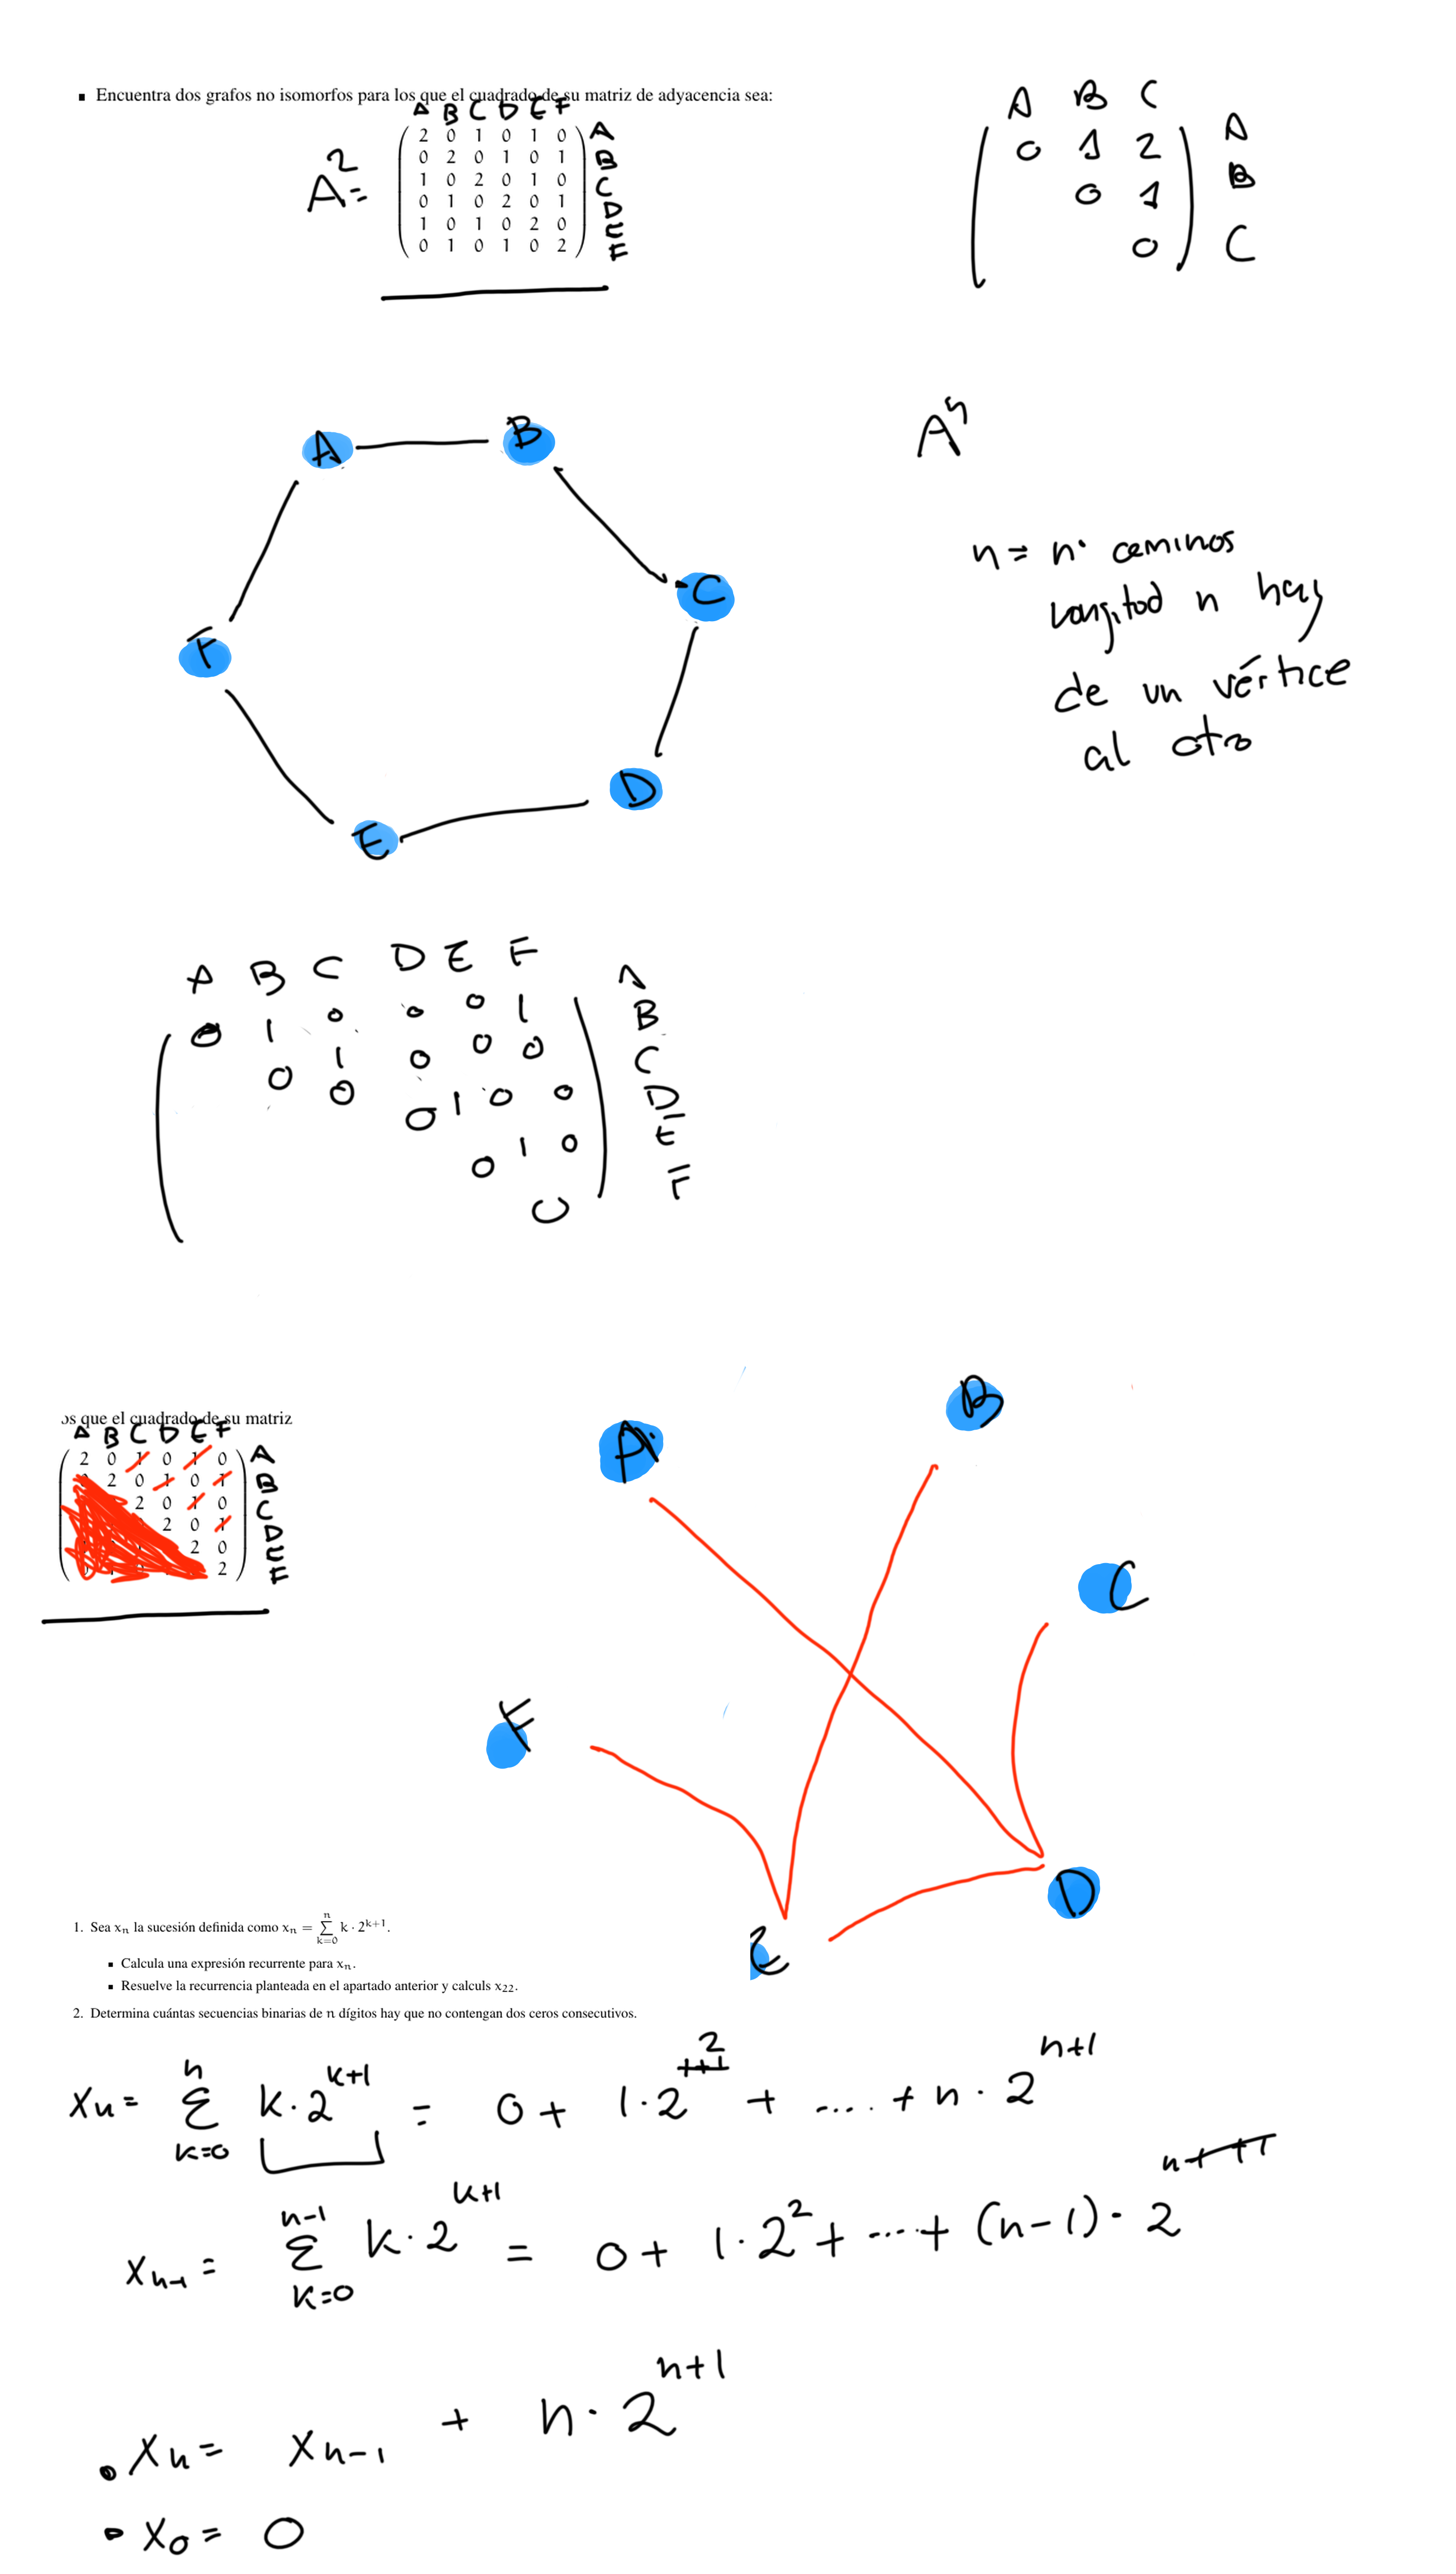 ▪ Encuentra dos grafos no isomorfos para los que el cuadrado de su matriz de adyacencia sea:
A B C D E F
A² =
2 0 1 0 1 0 A
0 2 0 1 0 1 B
1 0 2 0 1 0 C
0 1 0 2 0 1 D
1 0 1 0 2 0 E
0 1 0 1 0 2 F
A B C
0 1 2 A
0 1 B
0 C
A B
C
F
D
E
Aⁿ
n = nº caminos
longitud n hay
de un vértice
al otro
A B C D E F
0 1 0 0 0 1 A
0 1 0 0 0 B
0 0 1 0 0 C
0 1 0 D
E
0 F
os que el cuadrado de su matriz
A B C D E F
2 0 1 0 1 0 A
2 0 1 0 1 B
2 0 1 0 C
2 0 1 D
2 0 E
2 F
A B
C
F
D
E
1. Sea xₙ la sucesión definida como xₙ = Σ_{k=0}^{n} k · 2^{k+1}.
▪ Calcula una expresión recurrente para xₙ.
▪ Resuelve la recurrencia planteada en el apartado anterior y calculs x₂₂.
2. Determina cuántas secuencias binarias de n dígitos hay que no contengan dos ceros consecutivos.
xₙ = Σ_{k=0}^{n} k · 2^{k+1} = 0 + 1 · 2² + .... + n · 2^{n+1}
xₙ₋₁ = Σ_{k=0}^{n-1} k · 2^{k+1} = 0 + 1 · 2² + .... + (n-1) · 2^n
• xₙ = xₙ₋₁ + n · 2^{n+1}
• x₀ = 0